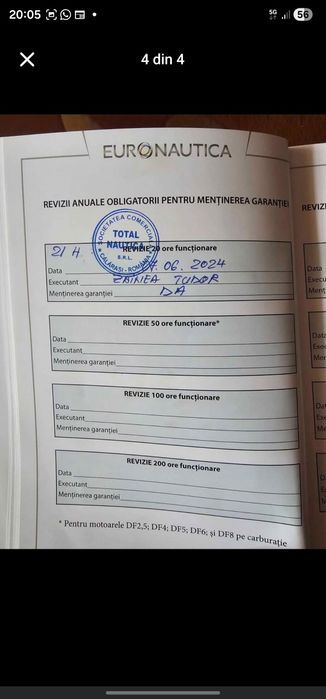 20:05
5G
56
4 din 4
EURONAUTICA
REVIZII ANUALE OBLIGATORII PENTRU MENȚINEREA GARANȚIEI
REVIZI
SOCIETATEA COMERCIALĂ
TOTAL
NAUTICA
S.R.L.
CĂLĂRAȘI - ROMÂNIA
21 H
REVIZIE 20 ore funcționare
Data 06. 2024
Executant TUDOR
Menținerea garanției DA
REVIZIE 50 ore funcționare*
Data
Executant
Menținerea garanției
REVIZIE 100 ore funcționare
Data
Executant
Menținerea garanției
REVIZIE 200 ore funcționare
Data
Executant
Menținerea garanției
* Pentru motoarele DF2,5; DF4; DF5; DF6; și DF8 pe carburație